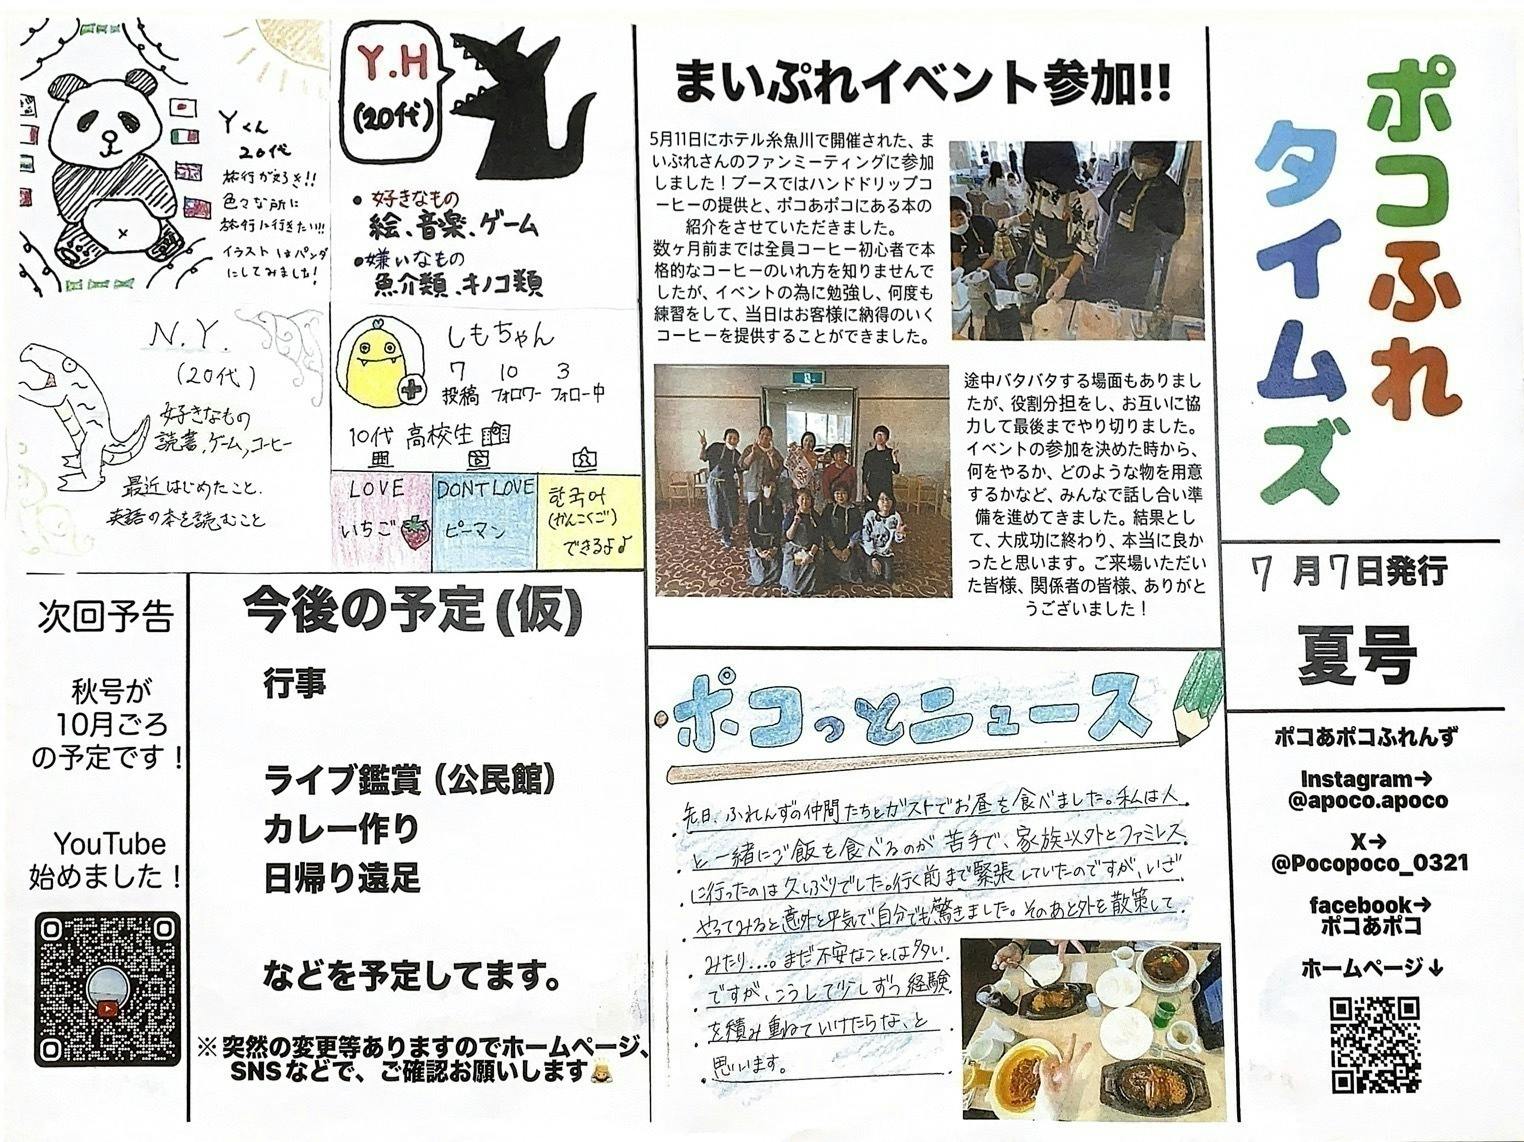 ポコふれ
タイムズ
7月7日発行
夏号
ポコあポコふれんず
Instagram→
@apoco.apoco
X→
@Pocopoco_0321
facebook→
ポコあポコ
ホームページ↓
まいぷれイベント参加!!
5月11日にホテル糸魚川で開催された、ま
いぷれさんのファンミーティングに参加
しました！ブースではハンドドリップコ
ーヒーの提供と、ポコあポコにある本の
紹介をさせていただきました。
数ヶ月前までは全員コーヒー初心者で本
格的なコーヒーのいれ方を知りませんで
したが、イベントの為に勉強し、何度も
練習をして、当日はお客様に納得のいく
コーヒーを提供することができました。
途中バタバタする場面もありまし
たが、役割分担をし、お互いに協
力して最後までやり切りました。
イベントの参加を決めた時から、
何をやるか、どのような物を用意
するかなど、みんなで話し合い準
備を進めてきました。結果とし
て、大成功に終わり、本当に良か
ったと思います。ご来場いただい
た皆様、関係者の皆様、ありがと
うございました！
ポコっとニュース
先日、ふれんずの仲間たちとガストでお昼を食べました。私は人
と一緒にご飯を食べるのが苦手で、家族以外とファミレス
に行ったのは久しぶりでした。行く前まで緊張していたのですが、いざ
やってみると意外と平気で自分でも驚きました。そのあと外を散策して
みたり...。まだ不安なことは多い
ですが、こうして少しずつ経験
を積み重ねていけたらな、と
思います。
Yくん
20代
旅行が好き!!
色々な所に
旅行に行きたい!!!
イラストはパンダ
にしてみました!
Y.H
(20代)
• 好きなもの
絵、音楽、ゲーム
• 嫌いなもの
魚介類、キノコ類
N.Y.
(20代)
好きなもの
読書、ゲーム、コーヒー
最近はじめたこと、
英語の本を読むこと
しもちゃん
7 10 3
投稿 フォロワー フォロー中
10代 高校生
LOVE
いちご
DONT LOVE
ピーマン
한국어
(かんこくご)
できるよ♪
今後の予定(仮)
行事
ライブ鑑賞（公民館）
カレー作り
日帰り遠足
などを予定してます。
※突然の変更等ありますのでホームページ、
SNSなどで、ご確認お願いします🙇
次回予告
秋号が
10月ごろ
の予定です！
YouTube
始めました！